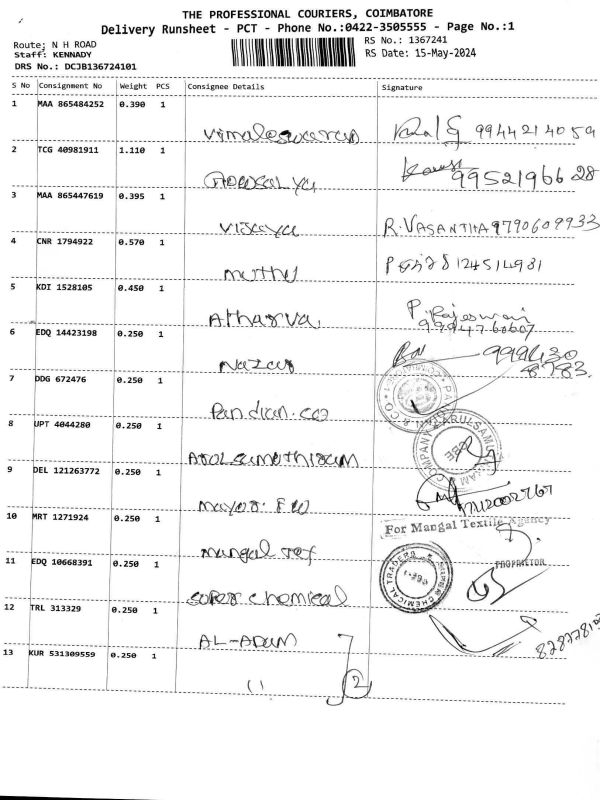 THE PROFESSIONAL COURIERS, COIMBATORE
Delivery Runsheet - PCT - Phone No.:0422-3505555 - Page No.:1
Route; N H ROAD
Staff: KENNADY
DRS No.: DCJB136724101
RS No.: 1367241
RS Date: 15-May-2024
S No Consignment No Weight PCS Consignee Details Signature
1 MAA 865484252 0.390 1
Vimaleswaran 9944214059
2 TCG 40981911 1.110 1
9952196628
3 MAA 865447619 0.395 1
Vijaya R.VASANTHA 9790609933
4 CNR 1794922 0.570 1
muthu 8124514981
5 KDI 1528105 0.450 1
Atharva P. Rajeswari
9994760607
6 EDQ 14423198 0.250 1
Nazar 999430
8783
7 DDG 672476 0.250 1
Pandian.co
8 UPT 4044280 0.250 1
Arulsumathiram
COMPANY ARULSAM
9 DEL 121263772 0.250 1
mayor. FW
10 MRT 1271924 0.250 1
For Mangal Textile Agency
mangal Tex
PROPRIETOR
11 EDQ 10668391 0.250 1
Super chemical
SUPER CHEMICAL TRADERS
12 TRL 313329 0.250 1
AL-ADAM
13 KUR 531309559 0.250 1
( ) 2